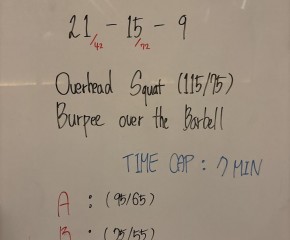 21 - 15 - 9
/42 /72
Overhead Squat (115/75)
Burpee over the Barbell
TIME CAP : 7 MIN
A : (95/65)
B : (75/55)